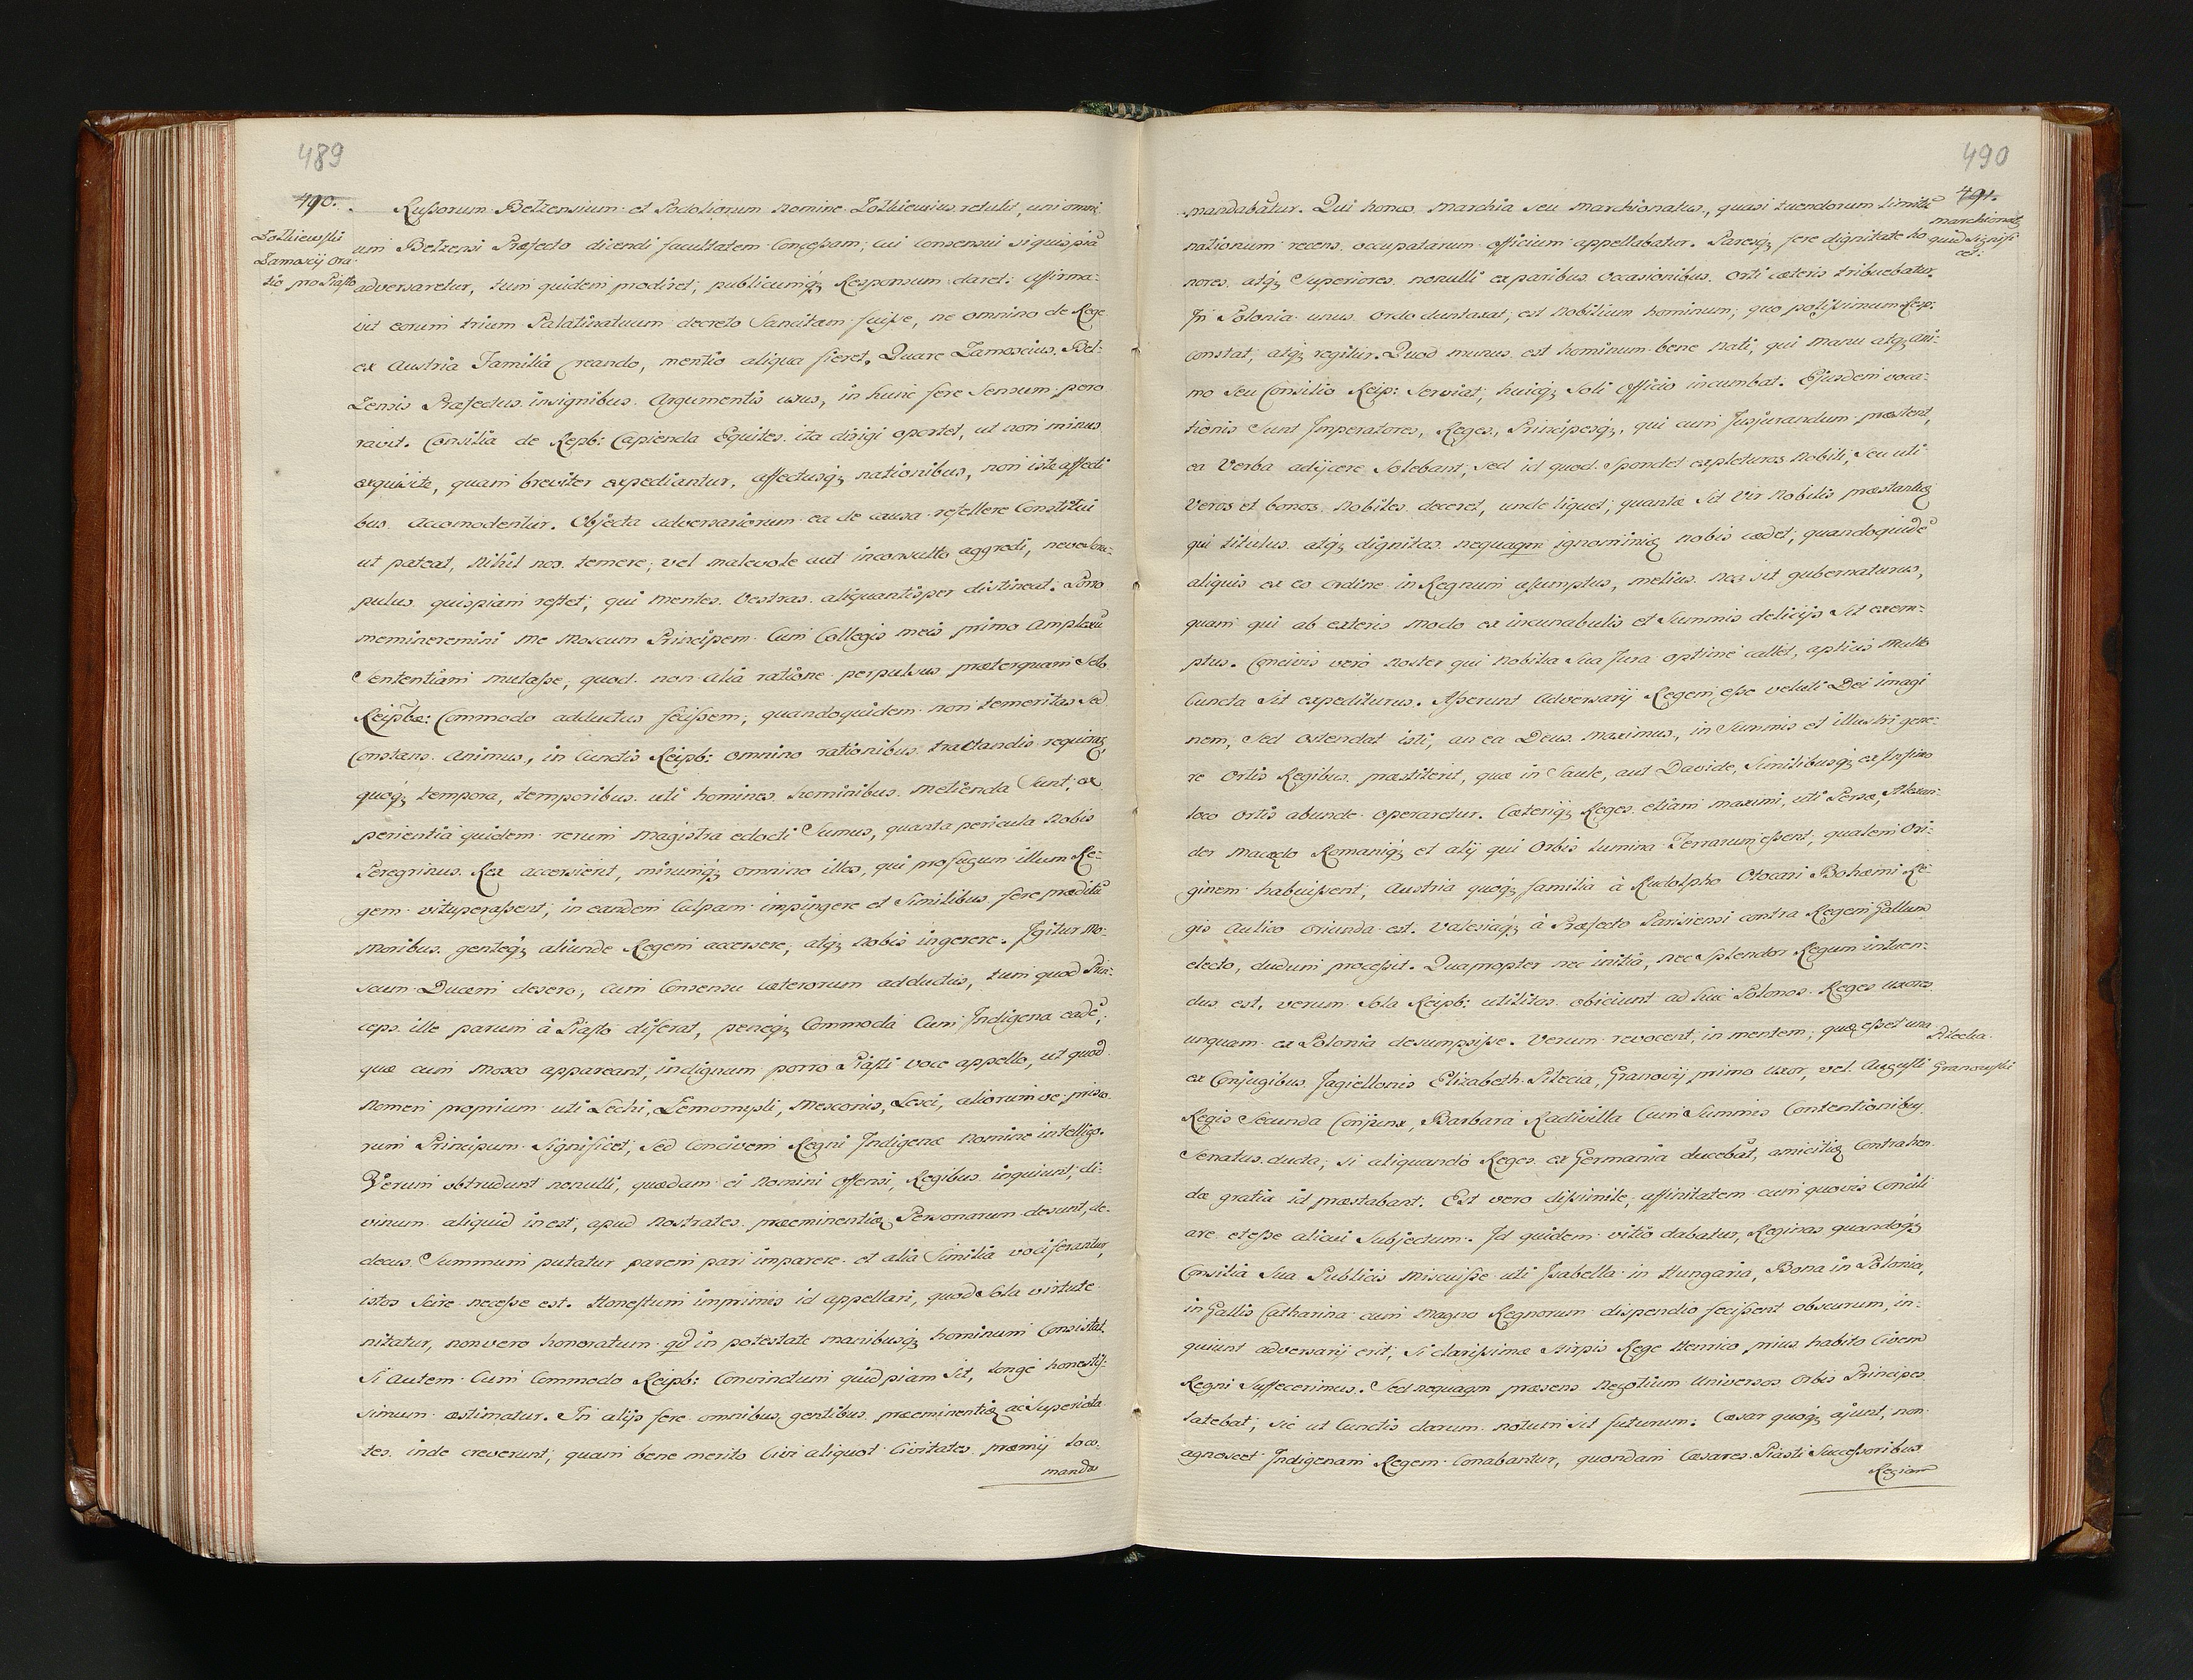 489
490.
Rußorum Belzensium et Podoliorum Nomine Zolkiewius retulit, uni omni
Zolkiewski
Zamoscij Ora:
tio pro Piasto
um Belzensi Præfecto dicendi facultatem Conceßam; cui consensui si quispiã
adversaretur, tum quidem prodiret, publicumq; Responsum daret: affirma:
vit eorum trium Palatinatuum decreto Sancitam fuiße, ne omnino de Rege
ex Austria Familia creando, mentio aliqua fieret. Quare Zamoscius Bel:
Zensis Præfectus insignibus Argumentis usus, in hunc fere Sensum pero
ravit. Consilia de Repb: Capienda Equites ita dirigi oportet, ut non minus
exquisite, quam breviter expediantur, affectusq; nationibus, non iste affecti
bus accomodentur. Objecta adversariorum ea de causa refellere Constitui
ut pateat, Nihil nos temere, vel malevole aut inconsulto aggredi, neve scru:
pulus quispiam restet; qui Mentes Vestras aliquantisper distineat. Porro
memineremini me Moscum Principem Cum Collegis meis primo Amplexũ
Sententiam mutaße, quod non alia ratione perpulsus præterquam Solo
Reipbæ: Commodo adductus fecißem; quandoquidem non temeritas Sed
Constans Animus, in Cunctis Reipb: omnino rationibus tractandis requirat,
quoq; tempora, temporibus uti homines hominibus metienda Sunt; ex
perientia quidem rerum Magistra edocti Sumus, quanta pericula Nobis
Peregrinus Rex accersierit, mirumq; omnino illos, qui profugum illum Re:
gem vituperaßent; in eandem Culpam impingere et Similibus fere præditũ
Moribus genteq; aliunde Regem accersere, atq; Nobis ingerere. Igitur Mo:
scum Ducem desero, Cum Consensu Cæterorum adductus, tum quod Prin:
ceps ille parum à Piasto diferat, peneq; Commoda Cum Indigena eadẽ,
quæ cum Mosco appareant, indignum porro Piasti voce appello, ut quod
Nomen proprium uti Lechi, Lemomysli, Mesconis, Lesci, aliorumve prisco
rum Principum Significet, Sed Concivem Regni Indigenæ Nomine intelligo.
Verum obtrudunt nonulli, quædam ei Nomini offensi, Regibus inquiunt, di:
vinum aliquid inest, apud Nostrates præeminentiæ Personarum desunt, de:
decus Summum putatur parem pari imparere et alia Similia vociferantur,
istos Scire neceße est. Honestum imprimis id appellari, quod Sola virtute
nitatur, non vero honoratum qd in potestate manibusq; hominum Consistat
Si autem Cum Commodo Reipb: Convinctum quidpiam Sit, longe honestiß:
simum æstimatur. In alijs fere omnibus gentibus præeminentiæ ac Superiota
tes inde creverunt, quam bene merito Civi aliquot Civitates præmij loco
mandæ
490
491.
mandabatur. Qui honos Marchia seu Marchionatus, quasi tuendorum limitũ
marchionat9
quid signifi
cet:
nationum recens occupatarum officium appellabatur. Paresq; fere dignitate ho
nores atq; Superiores nonulli ex paribus Occasionibus Orti cæteris tribuebatur.
In Polonia unus Ordo duntaxat, est Nobilium hominum, quo potißimum Resp:
constat, atq; regitur. Quod munus est hominum bene Nati, qui Manu atq; Ani:
mo Seu Consilio Reip: Serviat, huicq; Soli Officio incumbat. Ejusdem voca:
tionis Sunt Imperatores, Reges, Principesq;, qui cum Jusjurandum præstent,
ea Verba adijcere Solebant, Sed id quod Spondet expleturos Nobili, Seu uti
Veros et bonos Nobiles deceret, unde liquet, quantæ Sit Vir Nobilis præstantiæ
qui titulus atq; dignitas nequaqm ignominiæ nobis cedet, quandoquidẽ
aliquis ex eo ordine in Regnum aßumptus, melius nos sit gubernaturus,
quam qui ab exteris modo ex incunabulis et Summis delicijs Sit exem:
ptus. Concivis vero Noster qui Nobilia Sua Jura optime callet, aptius Multo
Cuncta Sit expediturus. Aßerunt Adversarij Regem eße veluti Dei imagi
nem, Sed Ostendat isti, an ea Deus Maximus, in Summis et illustri gene:
re Ortis Regibus præstiterit, quæ in Saule, aut Davide, Similibusq; ex Infimo
loco ortis abunde operaretur. Cæteriq; Reges etiam Maximi, uti Persæ, Alexan:
der Macedo Romaniq; et alij qui Orbis Lumina Terrarum eßent, qualem Ori:
ginem habuißent, Austria quoq; familia à Rudolpho Otocari Bohæmi Re:
gis Aulico oriunda est. Valesiaq; à Præfecto Parisiensi contra Regem Gallum
electo, dudum proceßit. Quapropter nec initia, nec Splendor Regum intuen:
dus est, verum Sola Reipb: utilitas obiciunt ad huc Polonos Reges uxores
unquam ex Polonia desumpsiße. Verum revocent in mentem; quæ eßet una
Pilecka.
ex Conjugibus Jagiellonis Elizabeth Pilecia, Granovij primo uxor, vel Augusti
Granowski
Regis Secunda Conjunx, Barbara Radivilla Cum Summis Contentionibus
Senatus ducta; si aliquando Reges ex Germania ducebãt, amicitiæ Contrahen
dæ gratia id præstabant. Est vero dißimile, affinitatem cum quovis Concili
are et eße alicui Subjectum. Id quidem vitio dabatur, Reginas quandoq;
Consilia Sua Publicis Miscuiße uti Isabella in Hungaria, Bona in Polonia,
in Gallis Catharina cum Magno Regnorum dispendio fecißent obscurum, in:
quiunt adversarij erit, Si clarißimæ Stirpis Rege Henrico prius habito Civem
Regni Suffecerimus. Sed nequaqm præsens Negotium Universos Orbis Principes
latebat, sic ut Cunctis clarum notum sit futurum. Cæsar quoq; ajunt, non
agnoscet Indigenam Regem Conabantur, quondam Cæsares Piasti Succeßoribus
Regiam